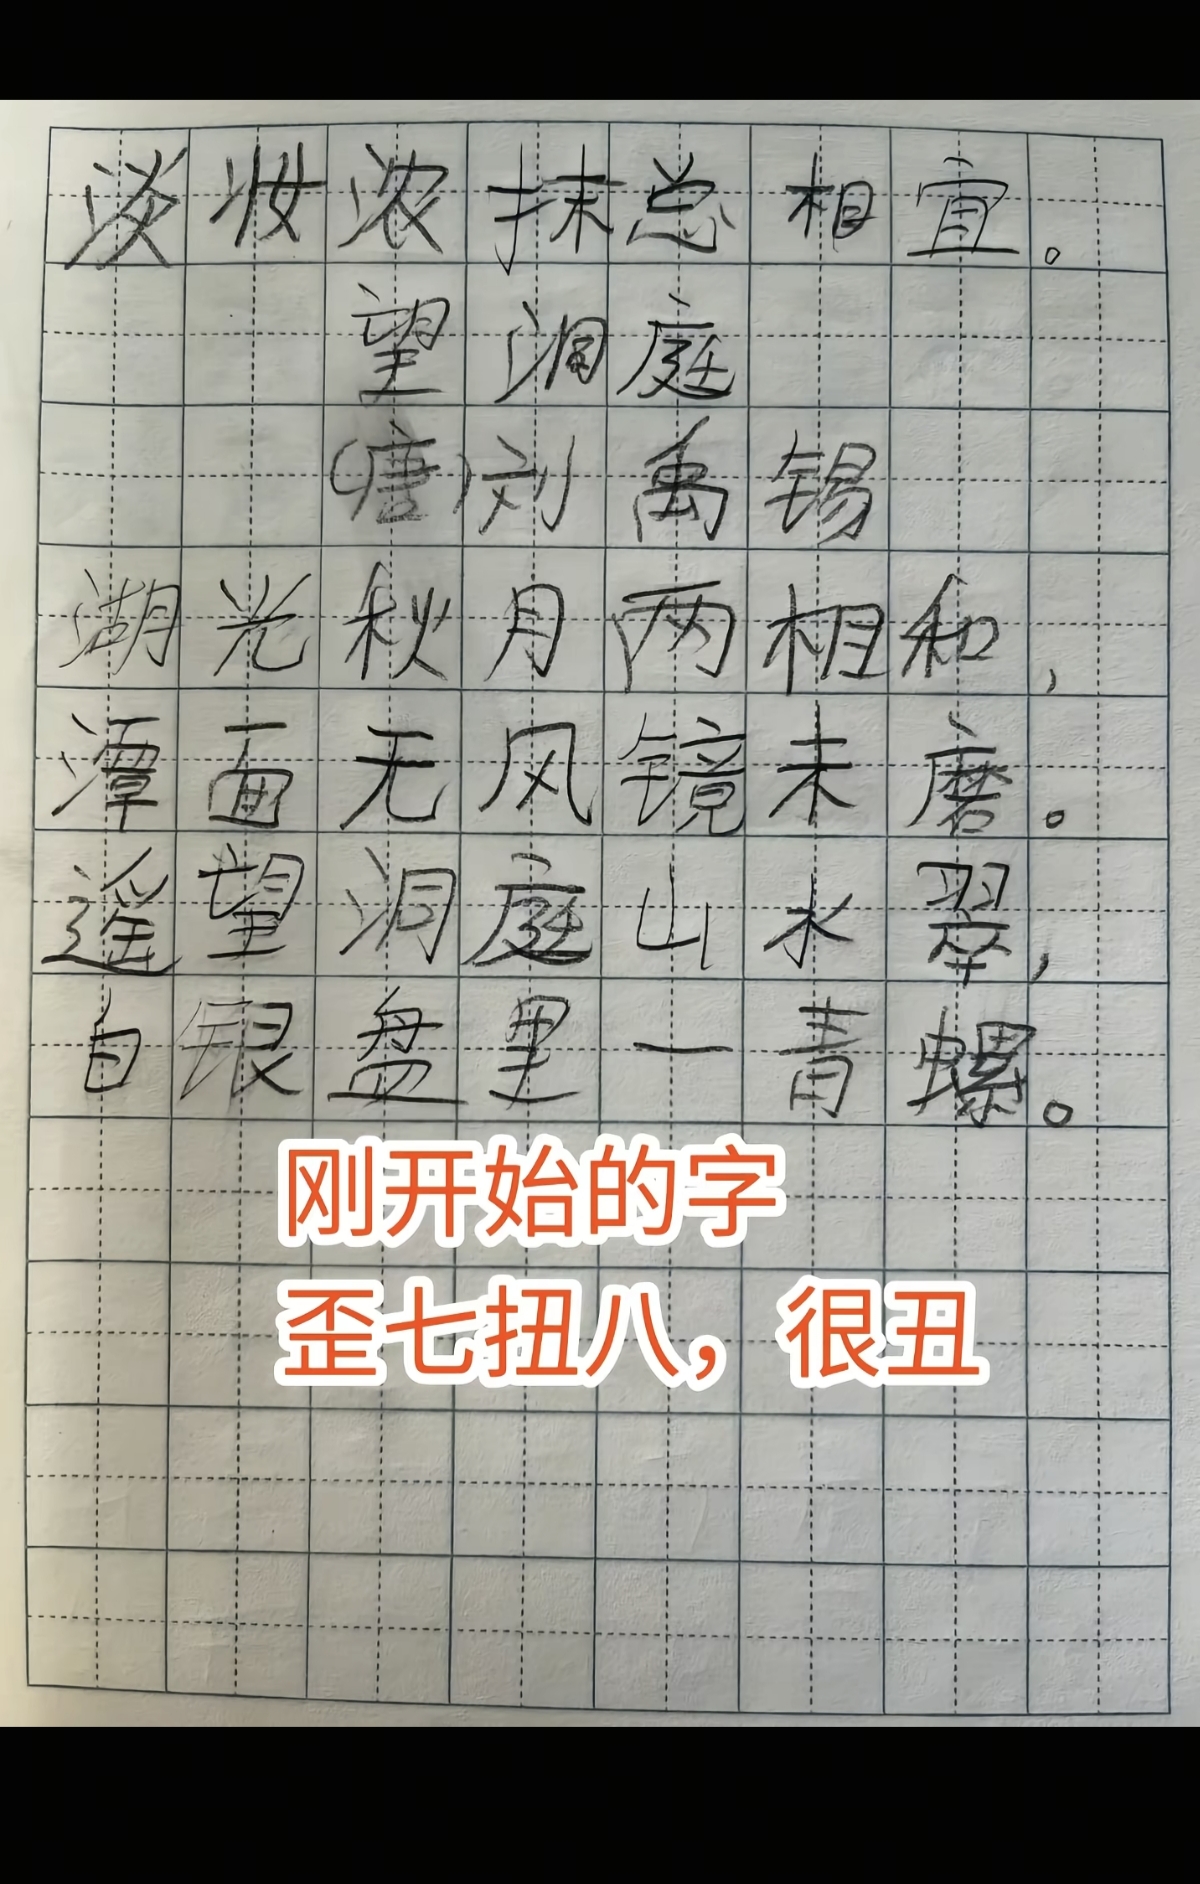 淡妆浓抹总相宜。
望洞庭
(唐)刘禹锡
湖光秋月两相和,
潭面无风镜未磨。
遥望洞庭山水翠,
白银盘里一青螺。
刚开始的字
歪七扭八，很丑